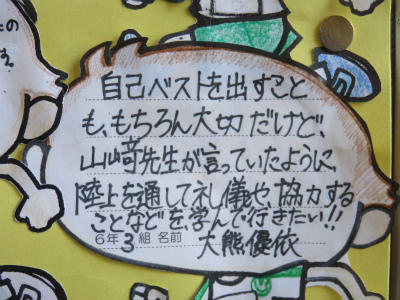 自己ベストを出すこと
も、もちろん大切だけど、
山﨑先生が言っていたように、
陸上を通して礼儀や、協力する
ことなどを、学んで行きたい!!
6年3組 名前 大熊優依